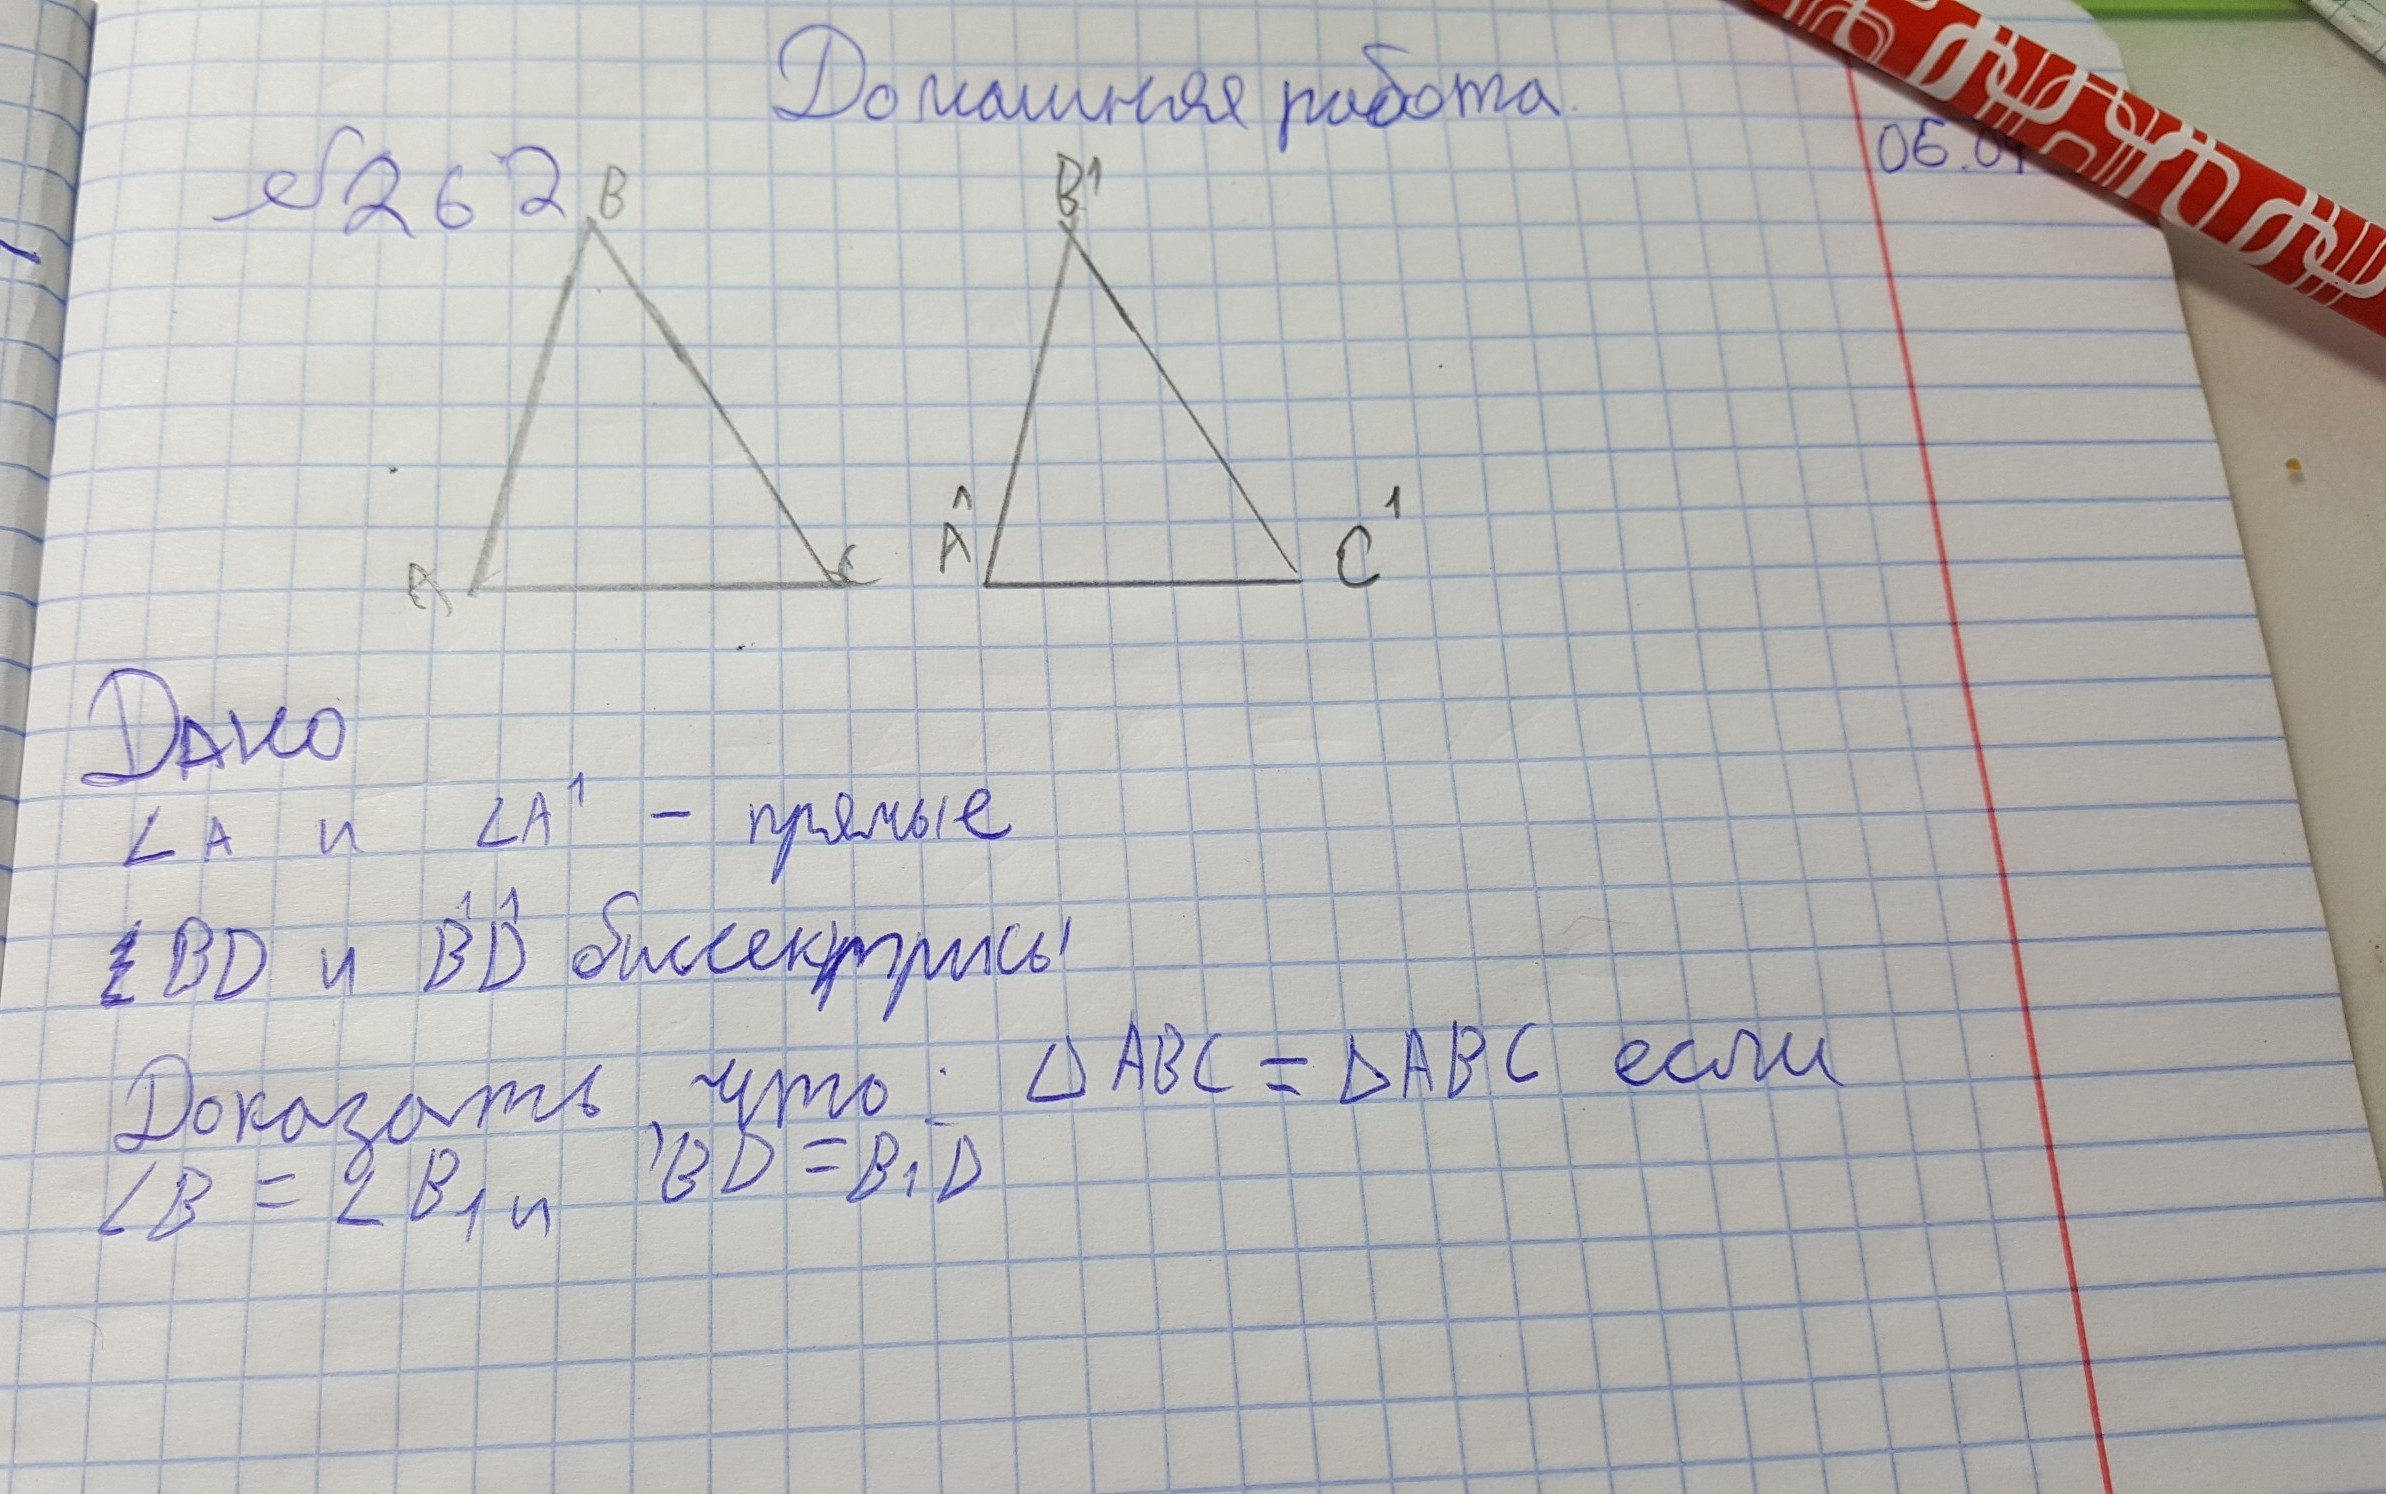 Домашняя работа.
06.04
№262
B B1
A C A1 C1
Дано
∠A и ∠A1 - прямые
BD и B1D1 биссектрисы
Доказать что: △ABC = △ABC если
∠B = ∠B1 и BD = B1D